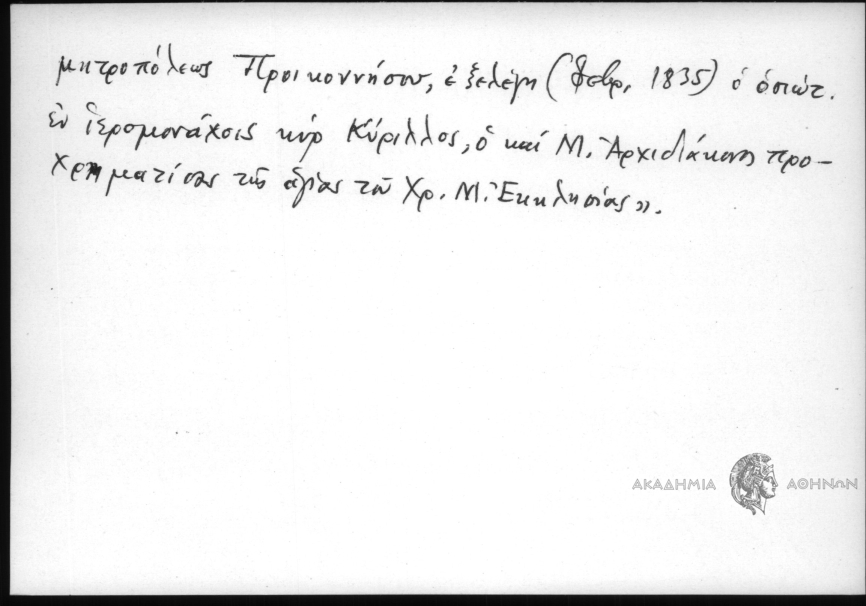 μητροπόλεως Προικοννήσου, ἐξελέγη (Φεβρ. 1835) ὁ ὁσιώτ.
ἐν ἱερομονάχοις κύρ Κύριλλος, ὁ καί Μ. Ἀρχιδιάκονος προ-
χρηματίσας τῆς ἁγίας τοῦ Χρ. Μ. Ἐκκλησίας».
ΑΚΑΔΗΜΙΑ ΑΘΗΝΩΝ